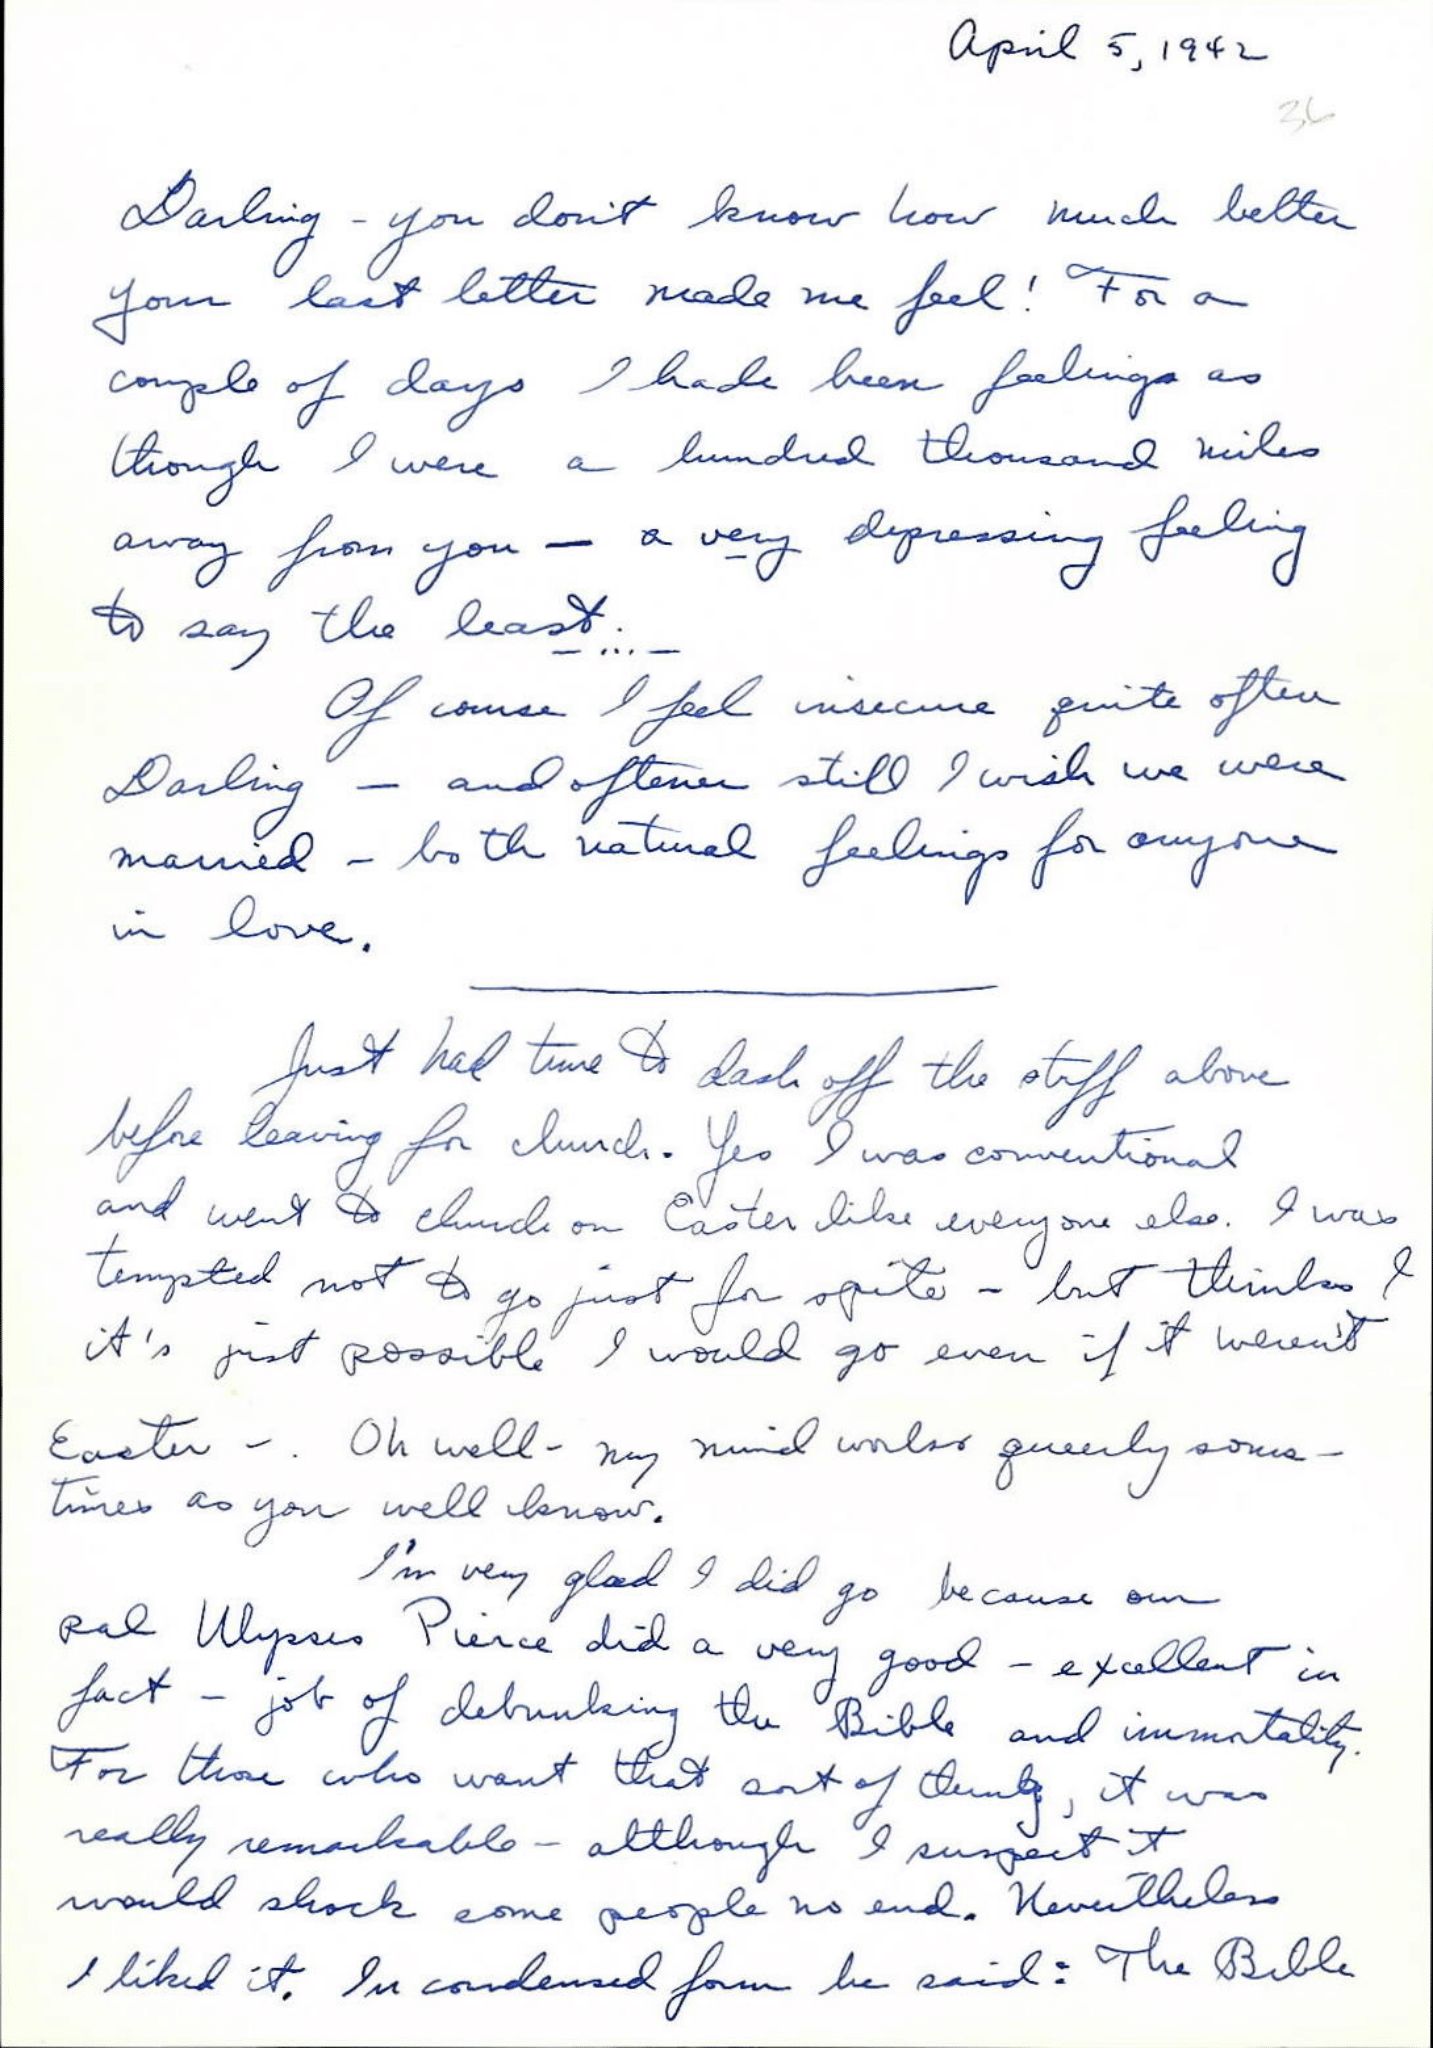 April 5, 1942
36
Darling - you don't know how much better
your last letter made me feel! For a
couple of days I hade been feelings as
though I were a hundred thousand miles
away from you — a very depressing feeling
to say the least. - ... -
Of course I feel insecure quite often
Darling — and oftener still I wish we were
married - both natural feelings for anyone
in love.
Just had time to dash off the stuff above
before leaving for church. Yes I was conventional
and went to church on Easter like everyone else. I was
tempted not to go just for spite - but thinks I
it's just possible I would go even if it weren't
Easter -. Oh well - my mind works queerly some-
times as you well know.
I'm very glad I did go because our
pal Ulysses Pierce did a very good - excellent in
fact - job of debunking the Bible and immortality.
For those who want that sort of thing, it was
really remarkable - although I suspect it
would shock some people no end. Nevertheless
I liked it. In condensed form he said: The Bible